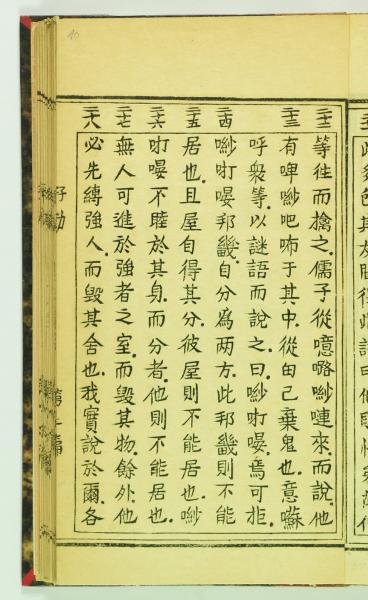 10
二十二 等往而擒之儒子從噫咯唦嗹來而說他
二十三 有啤唦吧咘于其中從由己棄鬼也意囌
呼衆等以謎語而說之曰唦咑焉可拒
二十四 唦咑邦畿自分為两方此邦畿則不能
二十五 居也且屋自得其分彼屋則不能居也唦
二十六 咑不睦於其身而分者他則不能居也
二十七 無人可進於強者之室而毀其物餘外他
二十八 必先縛強人而毀其舍也我實說於爾各